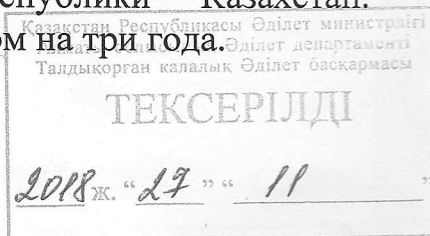 еспублики Казахстан.
Қазақстан Республикасы Әділет министрлігі
ом на три года.
Әділет департаменті
Талдықорған қалалық Әділет басқармасы
ТЕКСЕРІЛДІ
2018 ж. “27” “ 11 ”